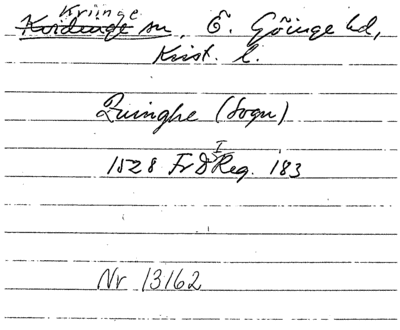 Kviinge
Kvidinge sn, Ö. Göinge hd,
Krist. l.
Quinghe (Sogn)
I
1528 Fr D Reg. 183
Nr 13162